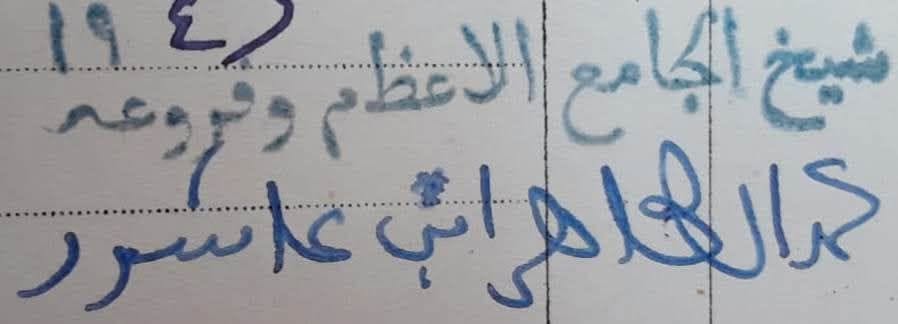 19 ٤
شيخ الجامع الاعظم وفروعه
محمد الطاهر ابن عاشور